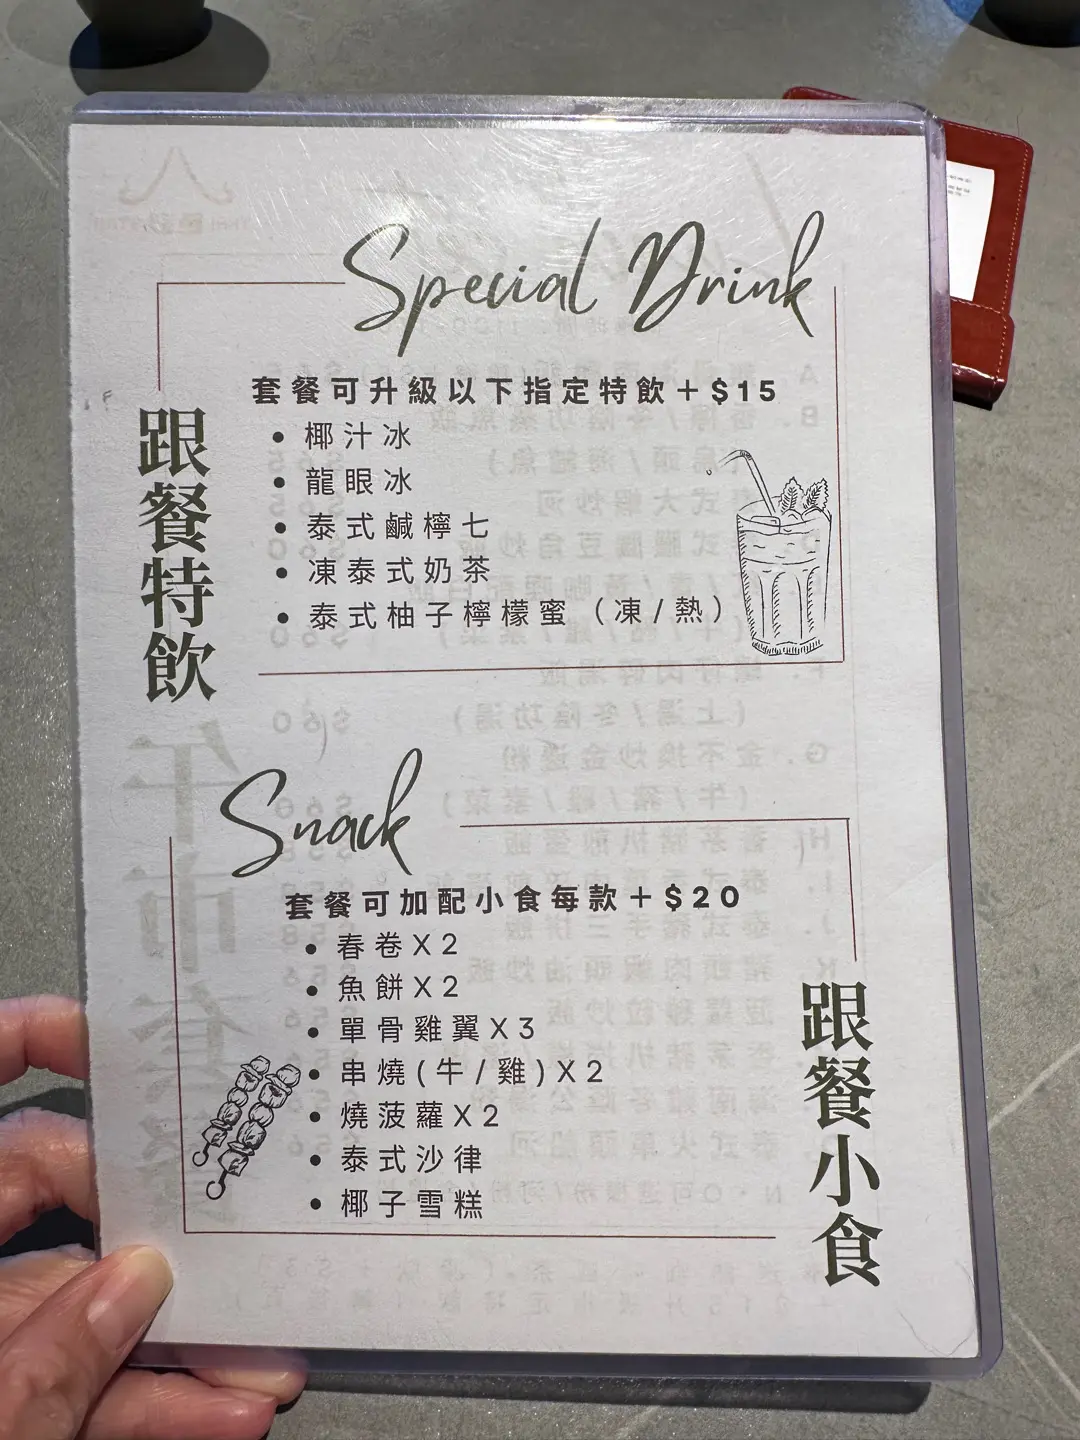 Special Drink
套餐可升級以下指定特飲+$15
• 椰汁冰
• 龍眼冰
• 泰式鹹檸七
• 凍泰式奶茶
• 泰式柚子檸檬蜜（凍/熱）
跟餐特飲
Snack
套餐可加配小食每款+$20
• 春卷X2
• 魚餅X2
• 單骨雞翼X3
• 串燒(牛/雞)X2
• 燒菠蘿X2
• 泰式沙律
• 椰子雪糕
跟餐小食